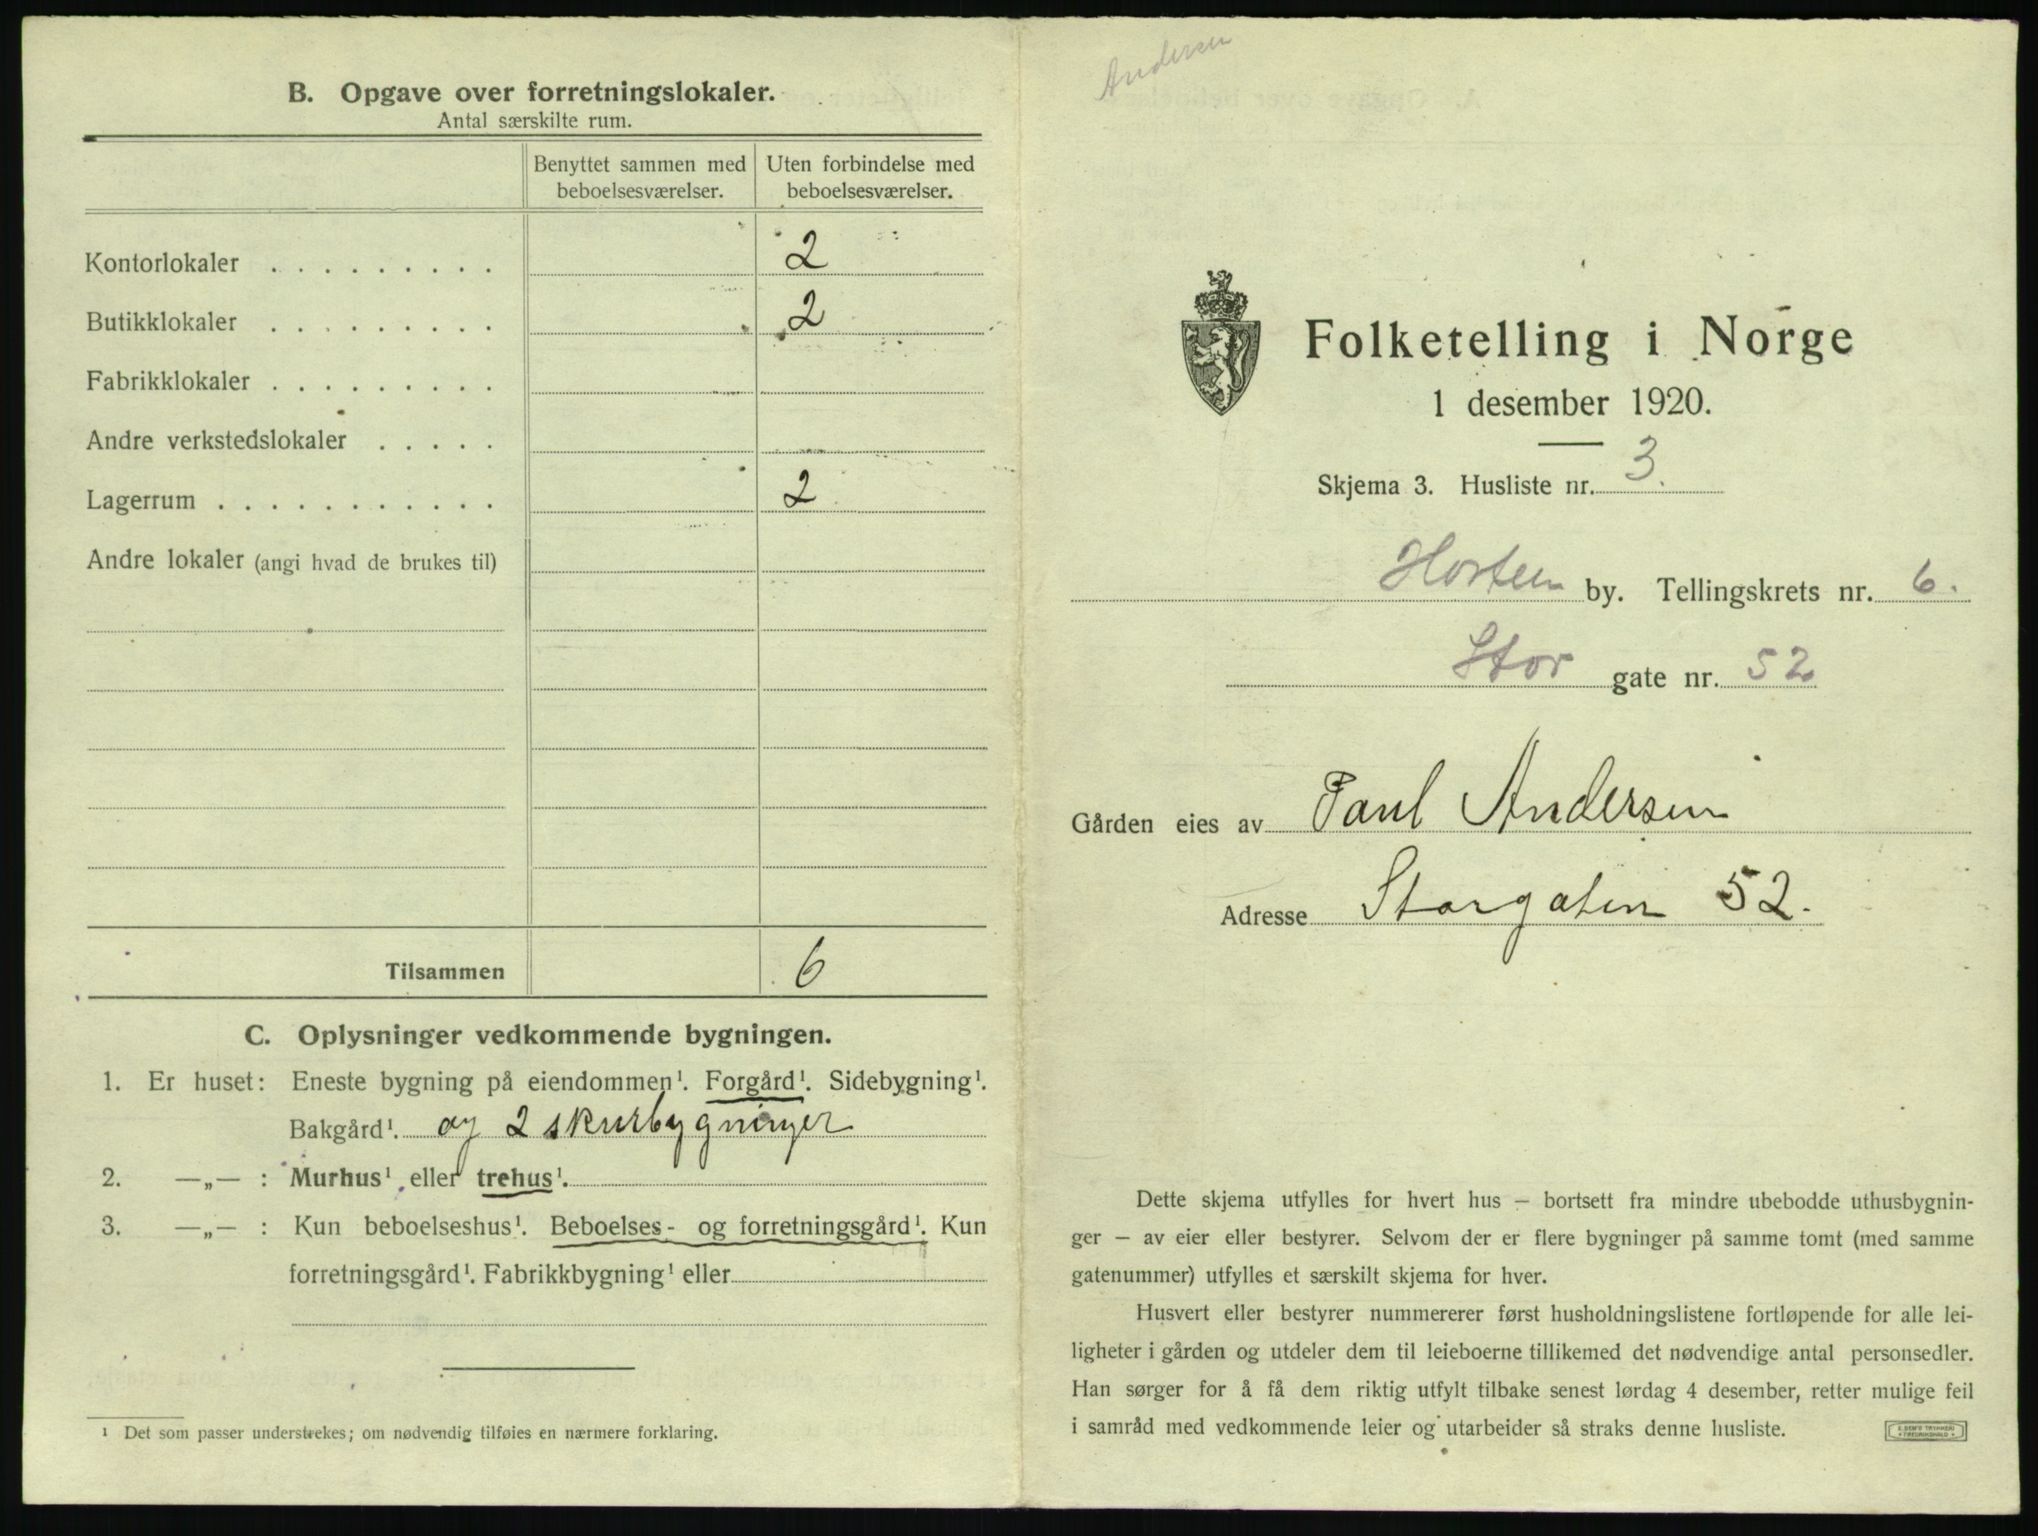 B. Opgave over forretningslokaler.
Antal særskilte rum.
Benyttet sammen med beboelsesværelser.
Uten forbindelse med beboelsesværelser.
Kontorlokaler . . . . . . . . . 2
Butikklokaler . . . . . . . . . 2
Fabrikklokaler . . . . . . . . .
Andre verkstedslokaler . . . . .
Lagerrum . . . . . . . . . . . 2
Andre lokaler (angi hvad de brukes til)
Tilsammen 6
C. Oplysninger vedkommende bygningen.
1. Er huset: Eneste bygning på eiendommen¹. Forgård¹. Sidebygning¹.
Bakgård¹. og 2 skurbygninger
2. —„— : Murhus¹ eller trehus¹.
3. —„— : Kun beboelseshus¹. Beboelses- og forretningsgård¹. Kun
forretningsgård¹. Fabrikkbygning¹ eller
¹ Det som passer understrekes; om nødvendig tilføies en nærmere forklaring.
Andersen
Folketelling i Norge
1 desember 1920.
Skjema 3. Husliste nr. 3.
Horten by. Tellingskrets nr. 6.
Stor gate nr. 52
Gården eies av Paul Andersen
Adresse Storgaten 52.
Dette skjema utfylles for hvert hus — bortsett fra mindre ubebodde uthusbygnin-
ger — av eier eller bestyrer. Selvom der er flere bygninger på samme tomt (med samme
gatenummer) utfylles et særskilt skjema for hver.
Husvert eller bestyrer nummererer først husholdningslistene fortløpende for alle lei-
ligheter i gården og utdeler dem til leieboerne tillikemed det nødvendige antal personsedler.
Han sørger for å få dem riktig utfylt tilbake senest lørdag 4 desember, retter mulige feil
i samråd med vedkommende leier og utarbeider så straks denne husliste.